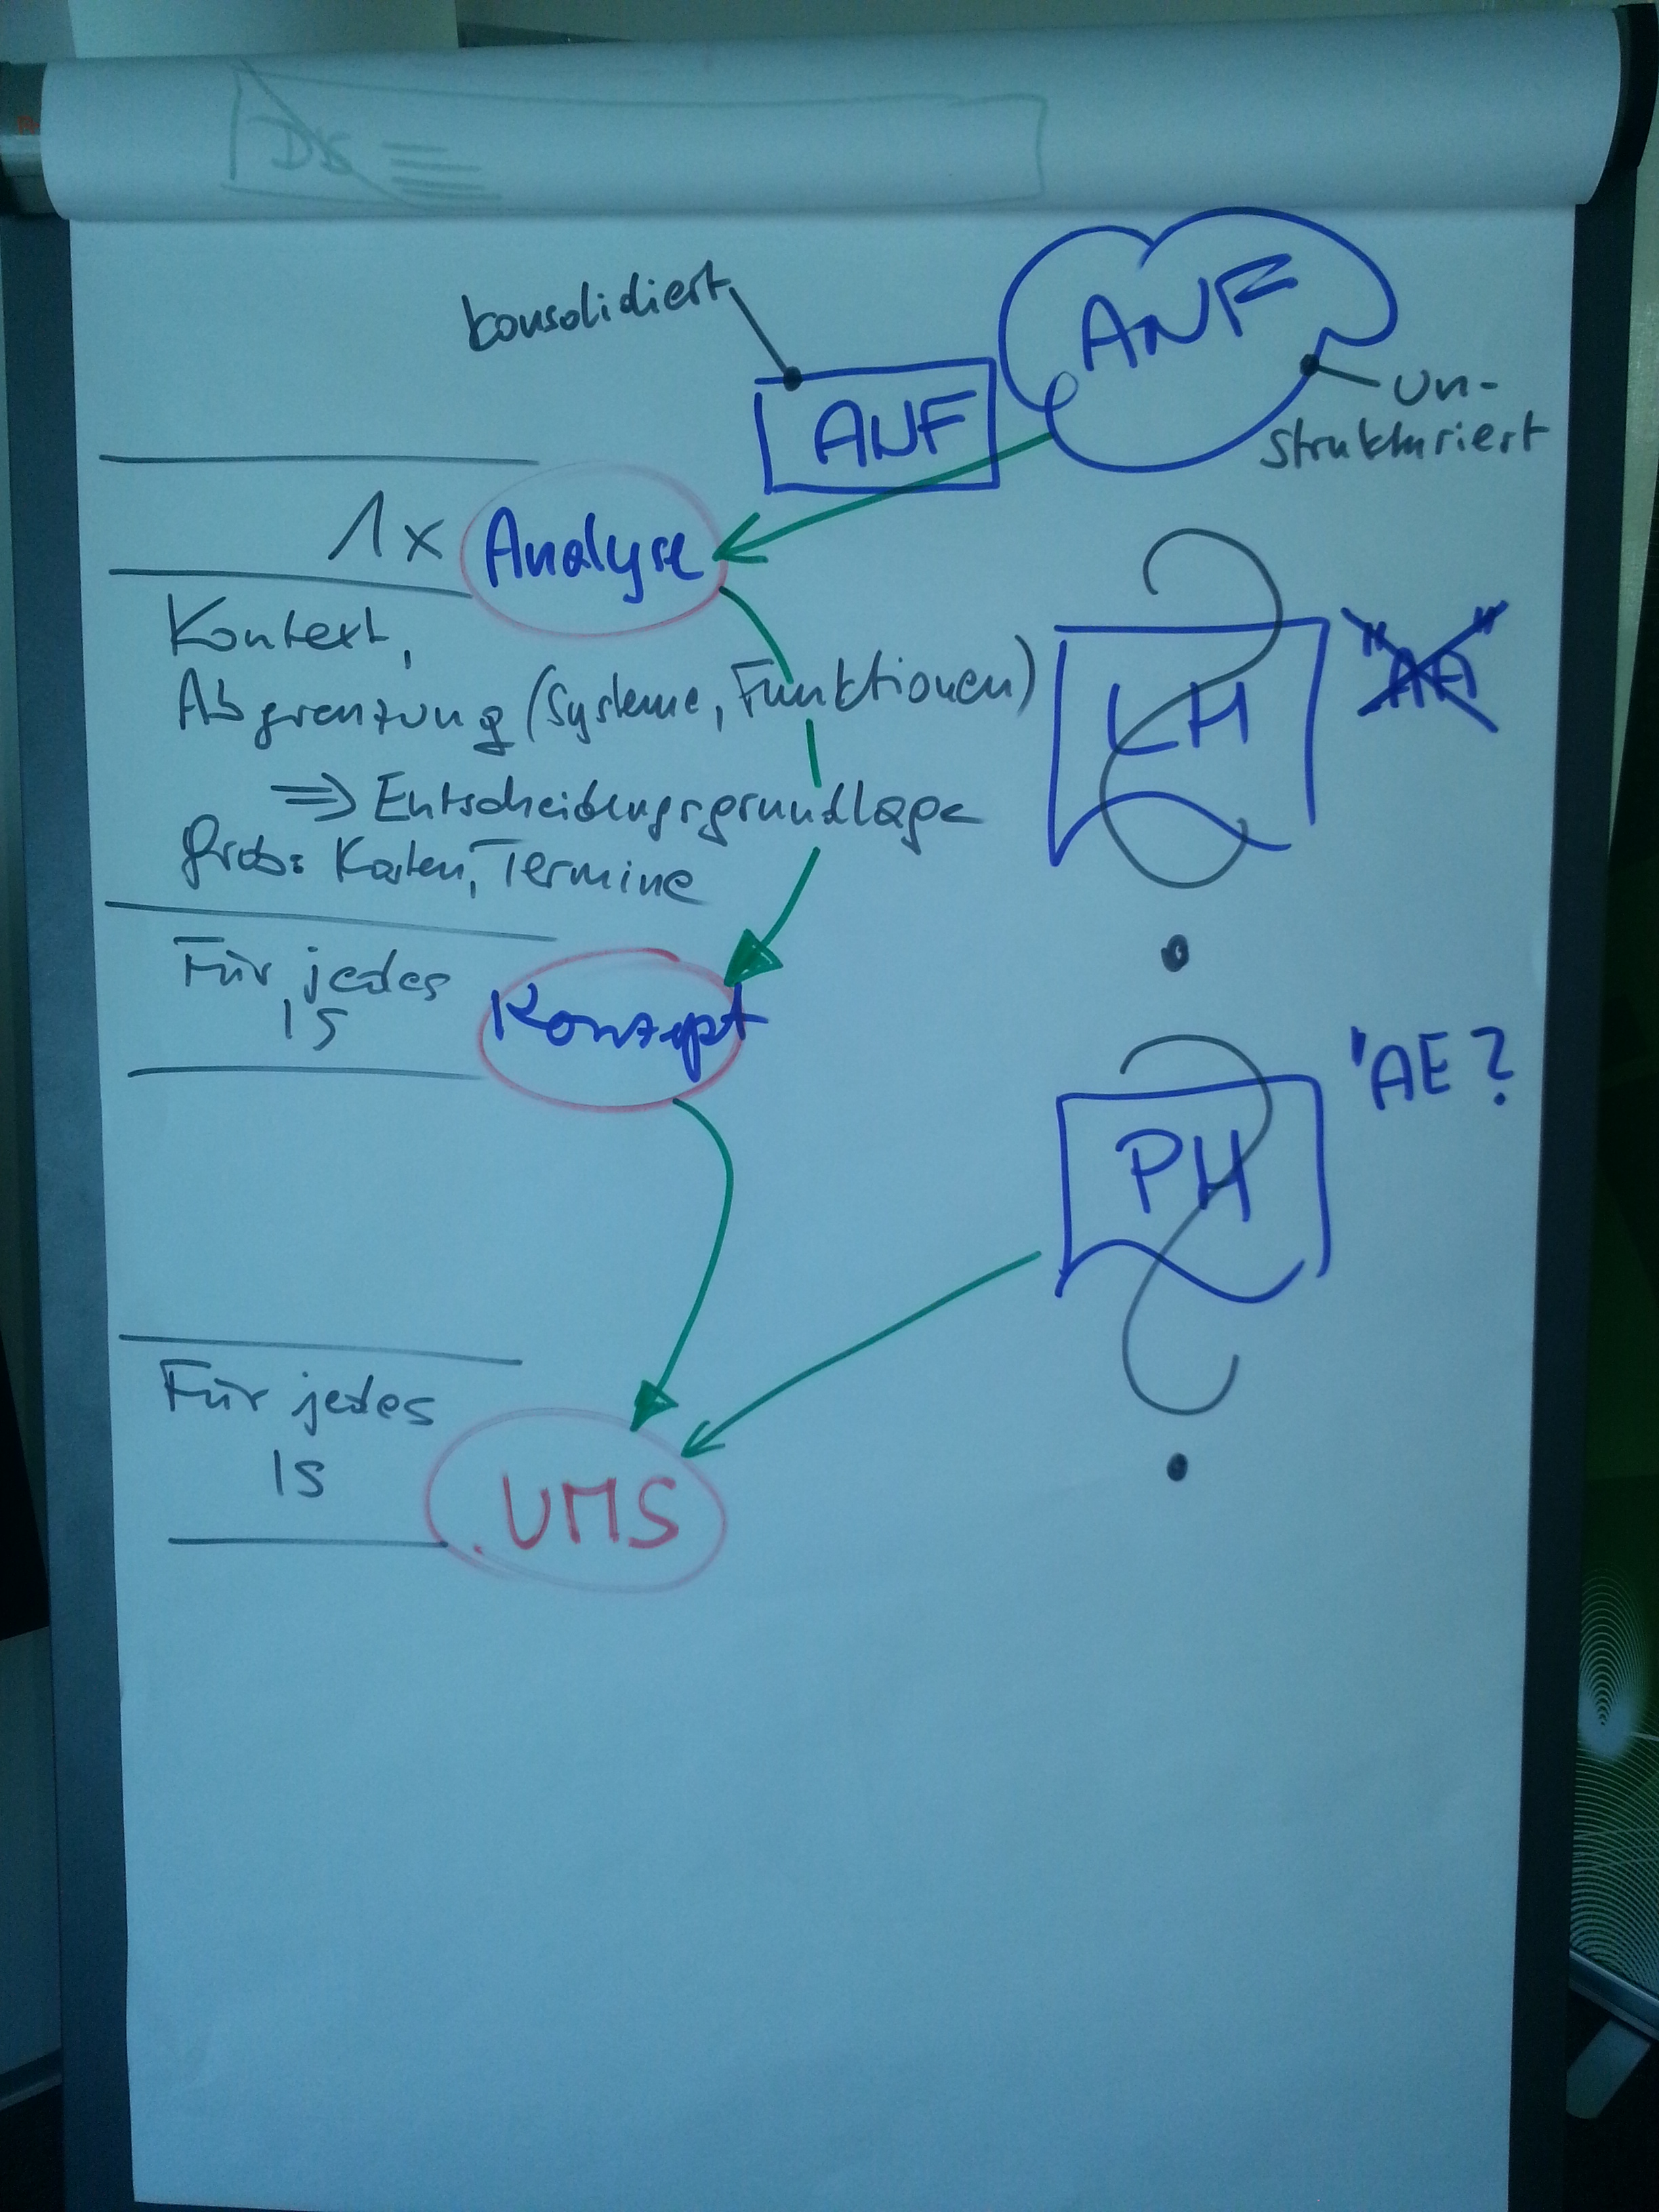 konsolidiert
ANF
ANF
un-
strukturiert
1x Analyse
Kontext,
Abgrenzung (Systeme, Funktionen)
⇒ Entscheidungsgrundlage
grob: Kosten, Termine
LH
"AA"
Für jedes
IS
Konzept
'AE?
PH
Für jedes
IS
UMS